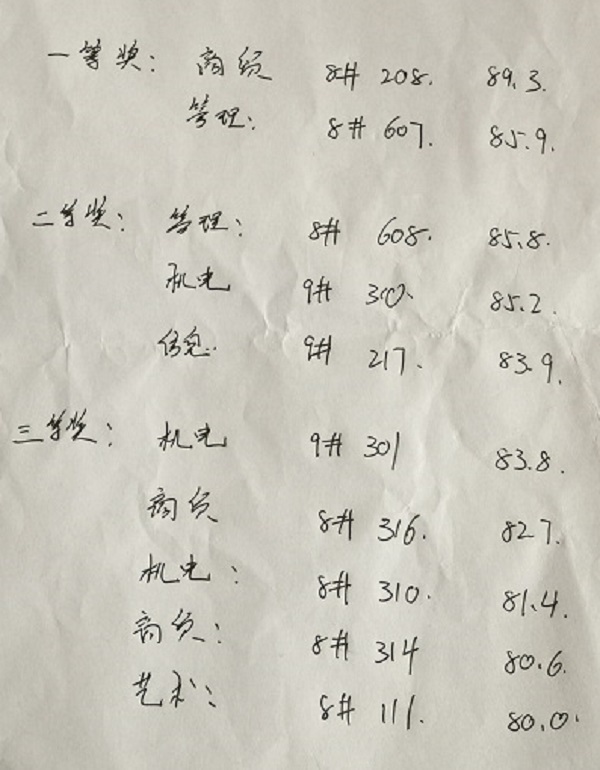 一等奖： 商贸 8# 208. 89.3.
管理： 8# 607. 85.9.
二等奖： 管理： 8# 608. 85.8.
机电 9# 310. 85.2.
信息.. 9# 217. 83.9.
三等奖： 机电 9# 301 83.8.
商贸 8# 316. 82.7.
机电： 8# 310. 81.4.
商贸： 8# 314 80.6.
艺术： 8# 111. 80.0.